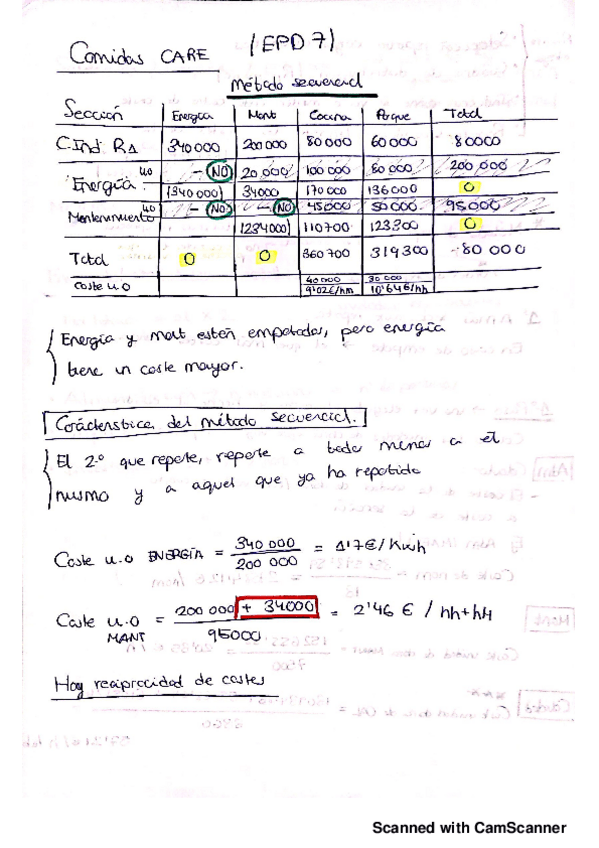 Comidas CARE (EPD 7)
Método secuencial
Sección Energía Mant Cocina Parque Total
C.Ind R1 340000 200000 80000 60000 80000
Energía uo - NO 20,000 100 000 80 000 200,000
(340 000) 34000 170 000 136000 0
Mantenimiento uo - NO - NO 45000 50000 95000
(234000) 110700 123300 0
Total 0 0 360700 319300 80 000
coste u.o 40 000 30 000
9'02€/hm 10'64€/hh
Energía y mant están empatadas, pero energía
tiene un coste mayor.
Carácterstica del método secuencial.
El 2.º que reparte, reparte a todo menos a él
mismo y a aquel que ya ha repartido
Coste u.o ENERGÍA = 340 000 / 200 000 = 1'7€/Kwh
Coste u.o MANT = 200 000 + 34000 / 95000 = 2'46 € / hh+hH
Hay reciprocidad de costes
Scanned with CamScanner